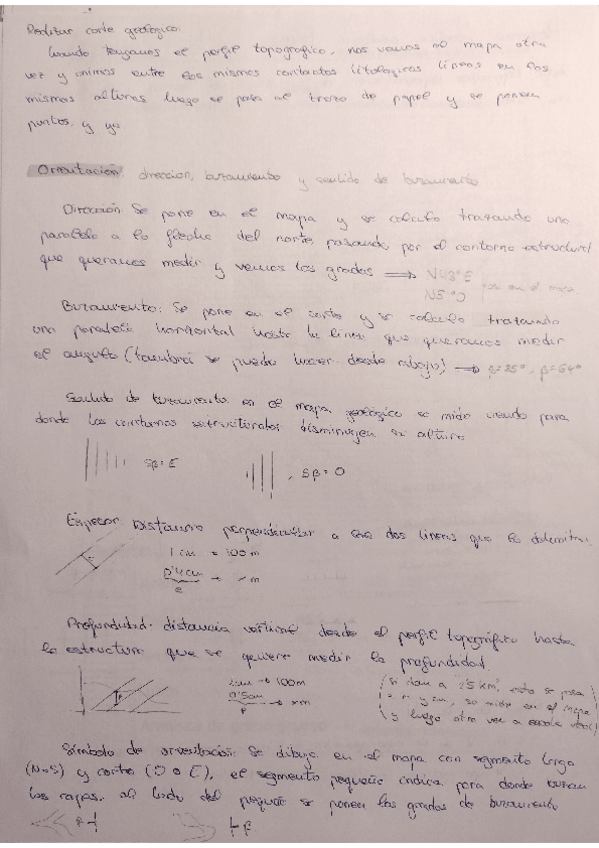 Realizar corte geológico:
Cuando tengamos el perfil topográfico, nos vamos al mapa otra
vez y unimos entre los mismos contactos litológicos líneas en las
mismas alturas luego se pasa al trozo de papel y se ponen
puntos, y ya
Orientación: dirección, buzamiento y sentido de buzamiento
Dirección: Se pone en el mapa y se calcula trazando una
paralela a la flecha del norte, pasando por el contorno estructural
que queramos medir y vemos los grados ⟹ N43°E
N5°O
Buzamiento: Se pone en el corte y se calcula trazando
una paralela horizontal hasta la línea que queramos medir
el ángulo (también se puede hacer desde abajo) → β=25°, β=64°
Sentido de buzamiento: en el mapa geológico se mide viendo para
donde los contornos estructurales disminuyen su altura
Sβ=E , Sβ=O
Espesor: Distancia perpendicular a las dos líneas que lo delimitan.
1 cm = 100m
0'4cm → x m
e
Profundidad: distancia vertical desde el perfil topográfico hasta
la estructura que se quiere medir la profundidad.
1cm → 100m
0'5cm → xm
P
(si dan a 25 km, esto se pasa
a cm, se mide en el mapa
y luego otra vez a escala real)
Símbolo de orientación: Se dibuja en el mapa con segmento largo
(N-S) y corto (O o E), el segmento pequeño indica para donde buzan
las capas, al lado del pequeño se ponen los grados de buzamiento
β β